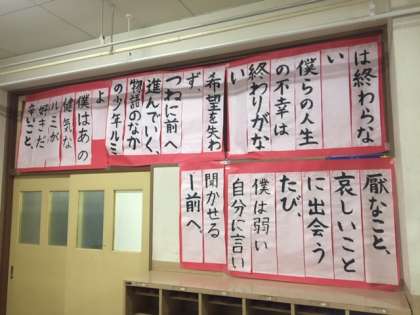 は終わらな
い
僕らの人生
の不幸は
終わりがな
い
希望を失わ
ず
つねに前へ
進んでいく
物語のなか
の少年ルミ
よ
僕はあの
健気な
ルミが
好きだ
辛いこと、
厭なこと、
哀しいこと
に出会う
たび、
僕は弱い
自分に言い
聞かせる
ー前へ。